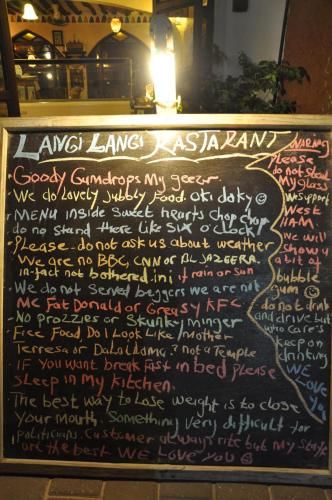 LANGI LANGI RASTARANT
• Goody Gumdrops My geezer.
• We do Lovely Jubbly Food. oki doky ☺
• MENU inside Sweet hearts chop chop
do no stand there like Six o'clock!
• Please-do not ask us about weather
We are no BBC, CNN or AL JAZEERA.
in-fact not bothered.ini if rain or sun
• We do not Served beggers we are not
MC Fat Donald or Greasy KFC
• NO prozzies or Skunky minger
• Free Food, Do I Look Like /Mother
Terresa or Dalai Lama? not a Temple
• IF YOU want breakfast in bed Please
sleep in My kitchen.
• The best way to Lose weight is to close
Your Mouth. Something very difficult for
Politicians. Customer always rite but My Staff
are the best WE Love You ☺
WARNING
Please
do not
Stand
My glass
We support
West
HAM.
We will
Show you
a bit of
bubble
gum ☺
do not drink
and drive but
who care's
keep on
drinking
WE
Love
You